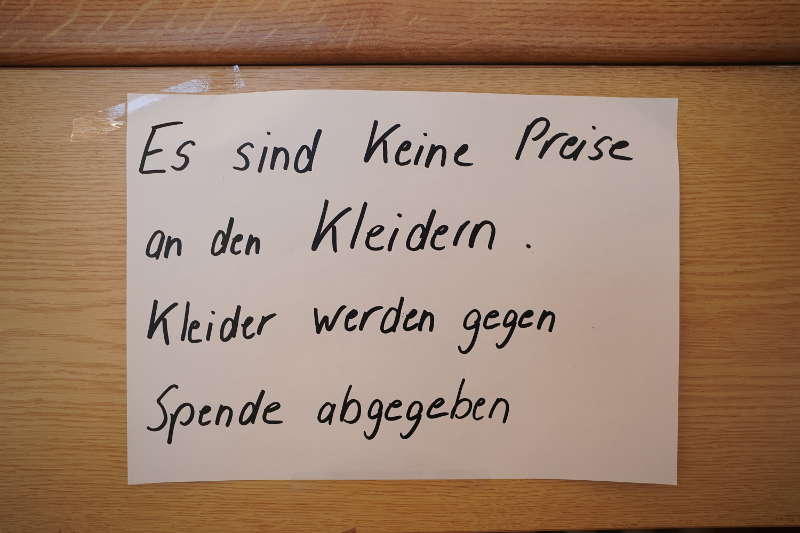 Es sind Keine Preise
an den Kleidern.
Kleider werden gegen
Spende abgegeben